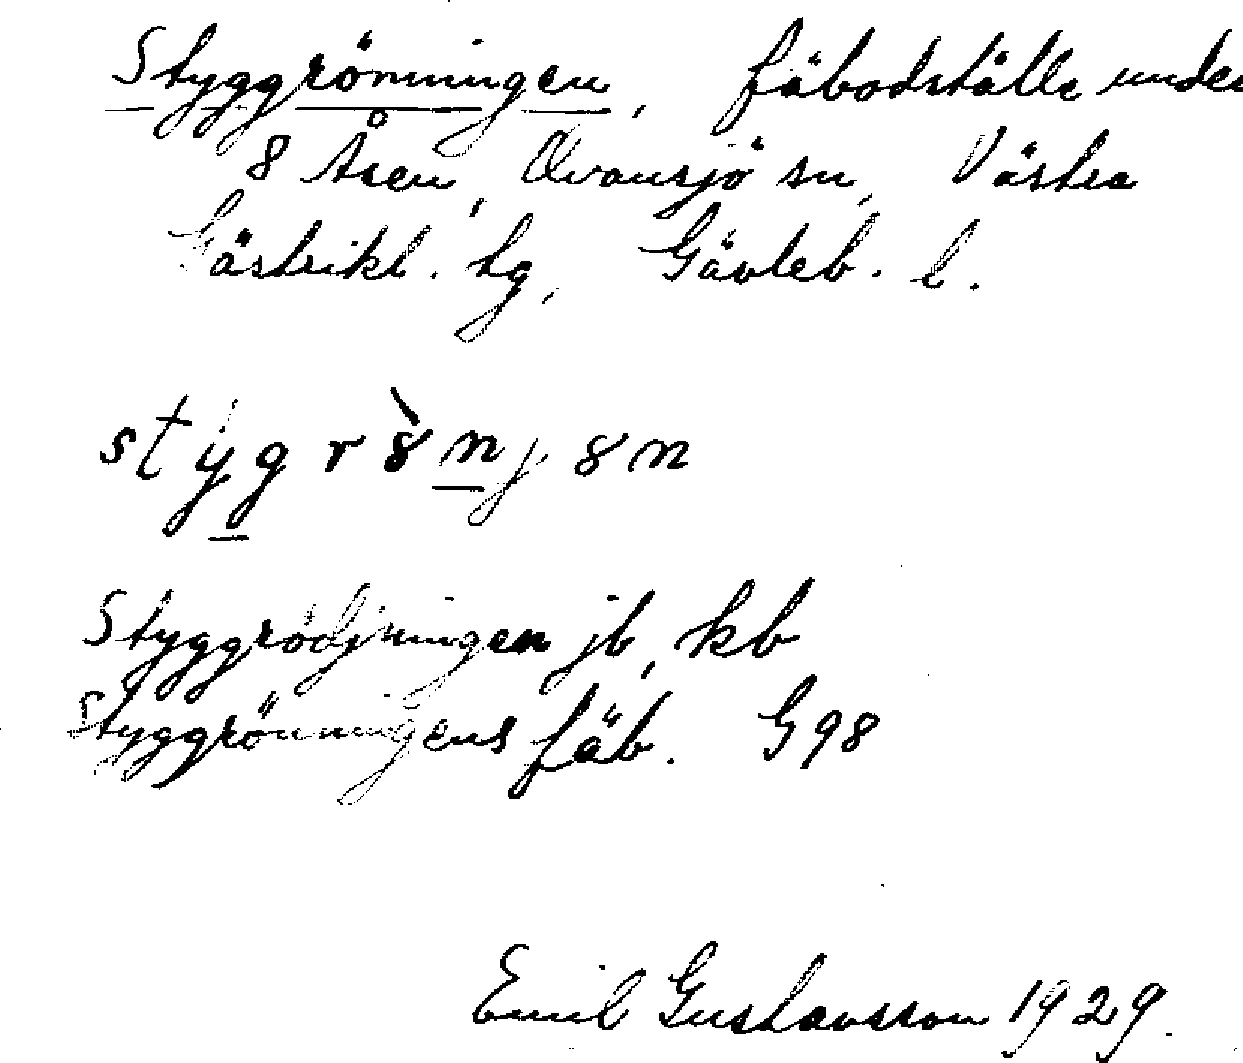 Styggrönningen, fäbodställe under
8 Åsen, Ovansjö sn, Västra
Gästrikl. tg, Gävleb. l.
stýgrꞛ̀njꞛn
Styggrödjningen jb, kb
Styggrönningens fäb. G98
Emil Gustavsson 1929.